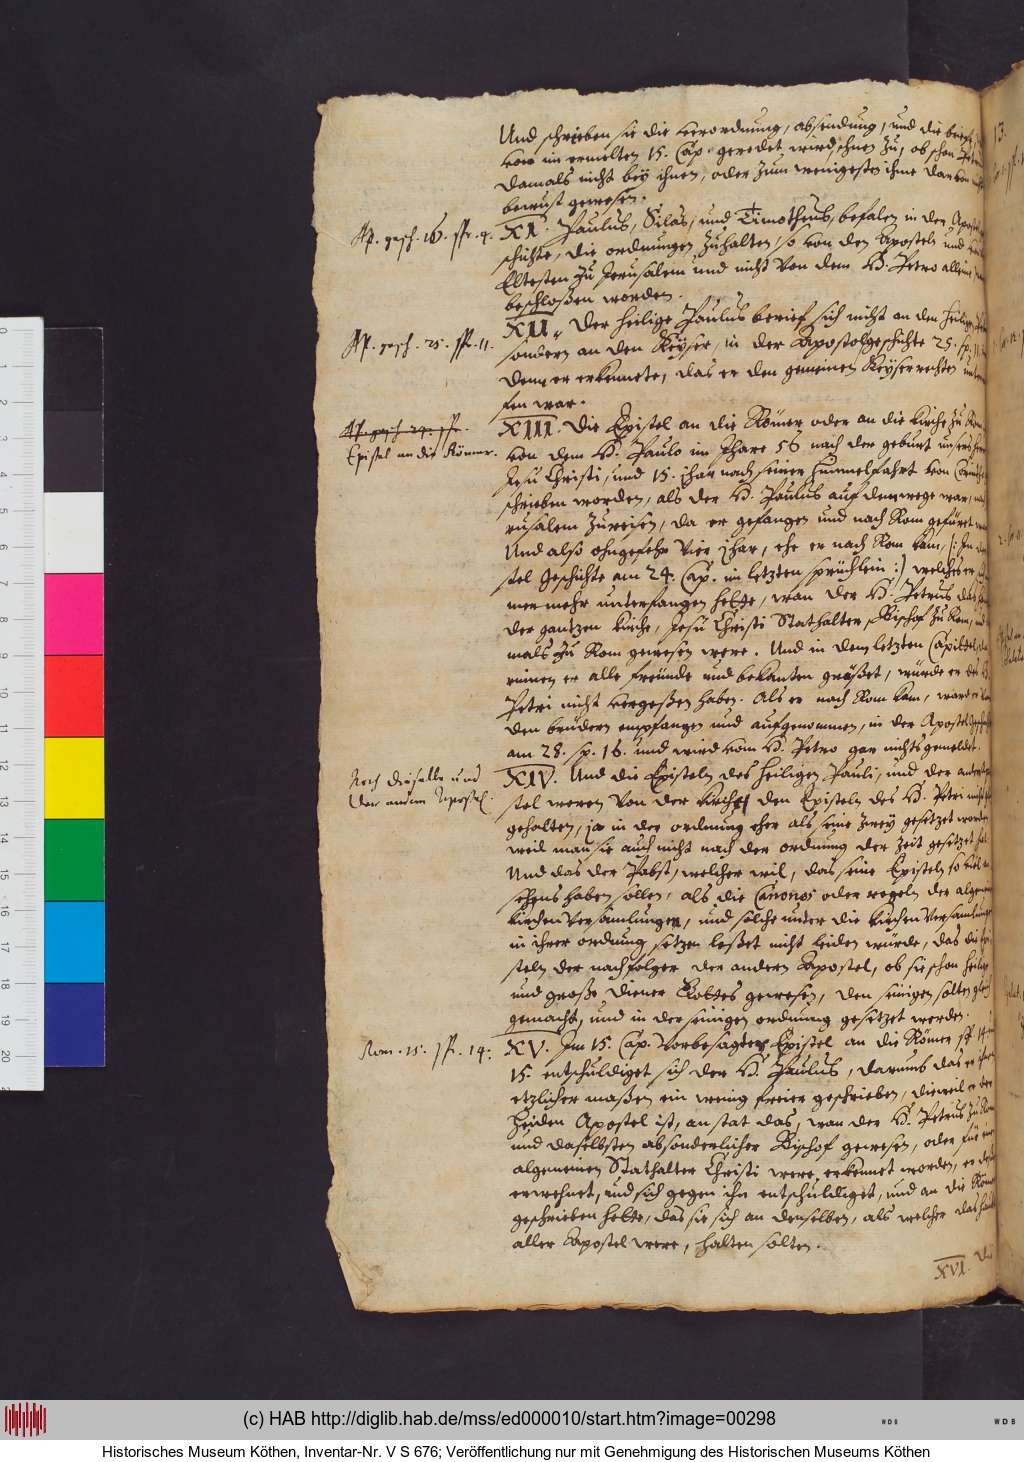 Und schrieben sie die verordnung, absendung, und die briefe,
von im ermelten 15. Cap. geredet wird, ihnen zu, ob schon
damals nicht bey ihnen, oder zum wenigesten ihme davon
bewust gewesen.
Ap. gesch. 16. spr. 4.
XI. Paulus, Silas, und Timotheus, befalen in der Apostel
schichte, die ordnungen zuhalten, so von den Aposteln und
Eltesten zu Jerusalem und nicht von dem H. Petro alleine
beschloßen worden.
Ap. gesch. 25. spr. 11.
XII. Der heilige Paulus berief sich nicht an den heiligen
sondern an den Keyser, in der Apostelgeschichte 25. sp. 11.
denn er erkennete, das er den gemeinen Keyserrechten
fen war.
Epistel an die Römer.
XIII. Die Epistel an die Römer oder an die kirche zu Rom
von dem H. Paulo im Jhare 56 nach der geburt unsers
Jesu Christi, und 15. ihar nach seiner himmelfahrt von
schrieben worden, als der H. Paulus auf dem wege war,
rusalem zureisen, da er gefangen und nach Rom gefüret
Und alß ohngefehr vier ihar, ehe er nach Rom kam, (: In
stel geschichte am 24. Cap. im letzten sprüchlein :) welches er
mermehr unterfangen hette, wan der H. Petrus das
der gantzen kirche, Jesu Christi Stathalter, Bischof zu Rom,
mals zu Rom gewesen were. Und in dem letzten Capittel,
rinnen er alle freunde und bekanten grüßet, würde er des H.
Petri nicht vergeßen haben. Als er nach Rom kam, ward er
den brüdern empfangen und aufgenommen, in der Apostelgeschicht
am 28. sp. 16. und wird vom H. Petro gar nichts gemeldet.
Noch dieselbe und
der andern Apostel.
XIV. Und die Episteln des heiligen Pauli, und der andern
stel weren von der kirchen den Episteln des H. Petri
gehalten, ja in der ordnung eher als seine zwey gesetzet worden
weil man sie auch nicht nach der ordnung der zeit gesetzet
Und das der Pabst, welcher wil, das seine Episteln so viel
sehens haben sollen, als die Canones oder regeln der algemeinen
kirchen versamlungen, und solche unter die kirchen versamlungen
in ihrer ordnung setzen leßet nicht leiden würde, das die
steln der nachfolger der andern Apostel, ob sie schon heilige
und große diener Gottes gewesen, den seinigen solten gleich
gemacht, und in der seinigen ordnung gesetzet werden.
Rom. 15. spr. 14.
XV. Im 15. Cap. vorbesagter Epistel an die Römer sp. 14.
15. entschuldiget sich der H. Paulus, darumb das er ihnen
etzlicher maßen ein wenig freier geschrieben, dieweil er der
Heiden Apostel ist, an stat das, wan der H. Petrus zu Rom
und daselbsten absonderlicher Bischof gewesen, oder für einen
algemeinen Stathalter Christi were erkennet worden, er
erwehnet, und sich gegen ihn entschuldiget, und an die Römer
geschrieben hette, das sie sich an denselben, als welcher das haubt
aller Apostel were, halten solten.
XVI. Das
(c) HAB http://diglib.hab.de/mss/ed000010/start.htm?image=00298
WDB
WDB
Historisches Museum Köthen, Inventar-Nr. V S 676; Veröffentlichung nur mit Genehmigung des Historischen Museums Köthen